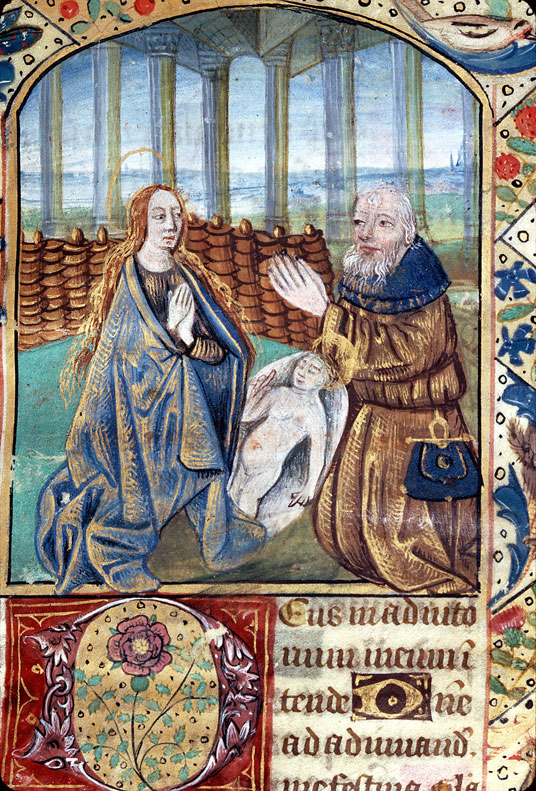 Eus in adiuto
rium meum i
tende ne
ad adiuuand.
me festina gla